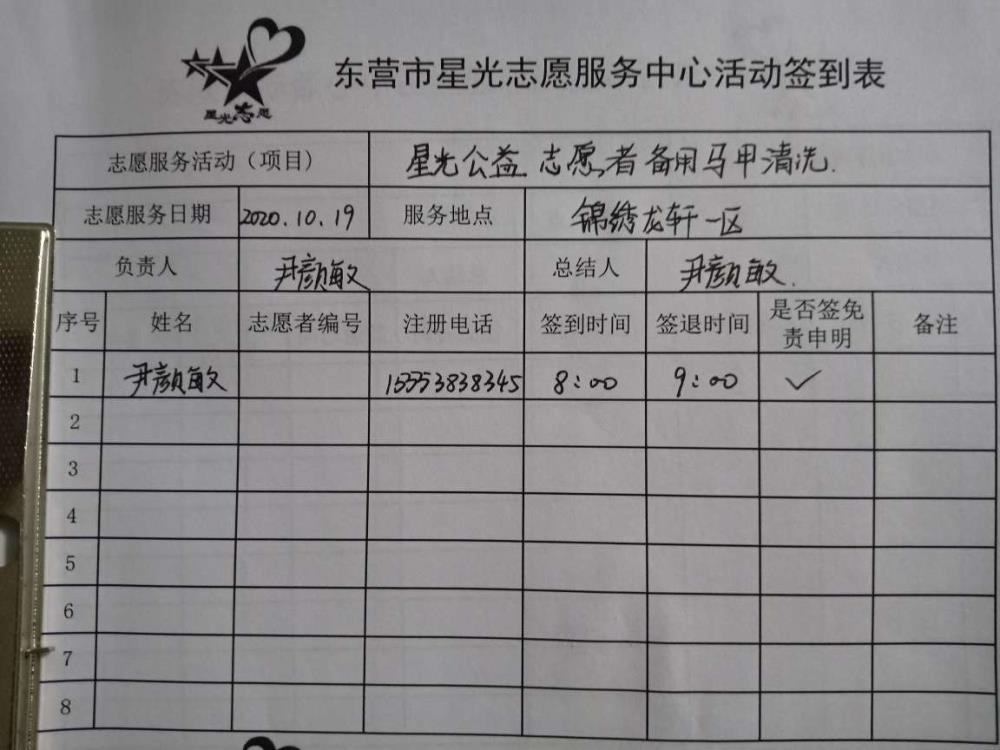 星光志愿
东营市星光志愿服务中心活动签到表
志愿服务活动（项目） 星光公益 志愿者备用马甲清洗.
志愿服务日期 2020.10.19 服务地点 锦绣龙轩一区
负责人 尹颜敏 总结人 尹颜敏.
序号 姓名 志愿者编号 注册电话 签到时间 签退时间 是否签免责申明 备注
1 尹颜敏 15553838345 8:00 9:00 ✓
2
3
4
5
6
7
8